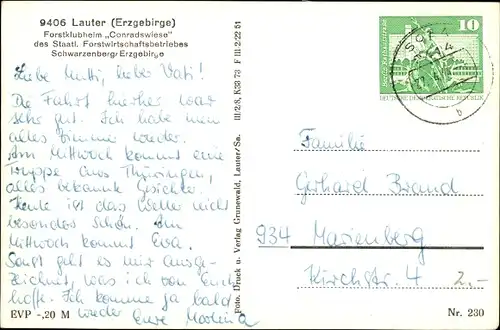 9406 Lauter (Erzgebirge)
Forstklubheim „Conradswiese"
des Staatl. Forstwirtschaftsbetriebes
Schwarzenberg/Erzgebirge
Liebe Mutti, lieber Vati!
Die Fahrt hierher war
sehr gut. Ich habe mein
altes Zimmer wieder.
Am Mittwoch kommt eine
Truppe aus Thüringen,
alles bekannte Gesichter.
Heute ist das Wetter nicht
besonders schön. Am
Mittwoch kommt Eva.
Sonst geht es mir ausge-
zeichnet, was ich von Euch
hoffe. Ich komme ja bald
wieder Eure
EVP -,20 M
Foto, Druck u. Verlag Grunewald, Lauter/Sa. III/2/8, K30 73 F III 2/22 51
10
DEUTSCHE DEMOKRATISCHE REPUBLIK
b
Familie
Gerhard Brand
934 Marienberg
Kirchstr. 4
2,-
Nr. 230